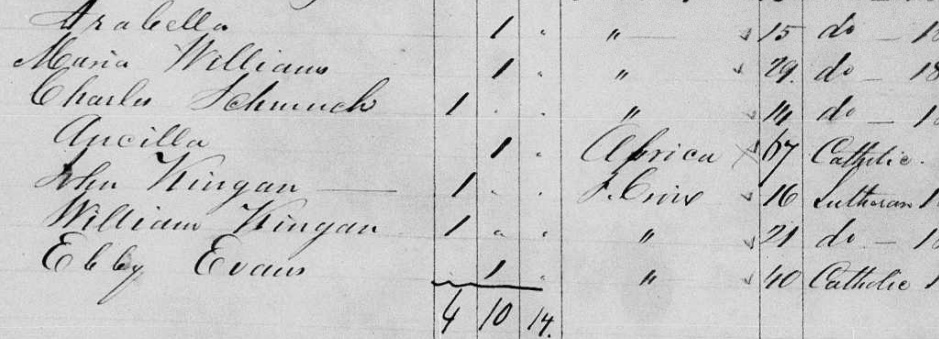 Arabella 1 " " 15 do —
Maria Williams 1 " 29. do — 18
Charles Schmuck 1 " " " 14 do —
Ancilla 1 " Africa 67 Catholic.
John Kingan — 1 " " St. Croix 16 Lutheran
William Kingan 1 " " " 21 do —
Ebby Evans 1 " " 40 Catholic
4 10 14.